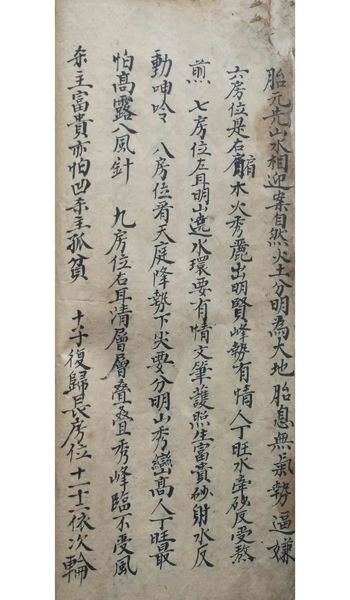 胎元先山水相迎案自然火土分明為大地 胎息無氣勢逼嫌
六房位是右肩水火秀麗出明賢峰勢有情人丁旺水走砂反受熬
煎 七房位左耳明山遶水環要有情文筆護照生富貴砂射水反
動呻吟 八房位看天庭降勢下尖要分明山秀巒高人丁旺最
怕高露八風針 九房位右耳情層層叠叠秀峰臨不受風
來主富貴亦怕凹来主孤貧 十子復歸長房位 十一十二依次輪